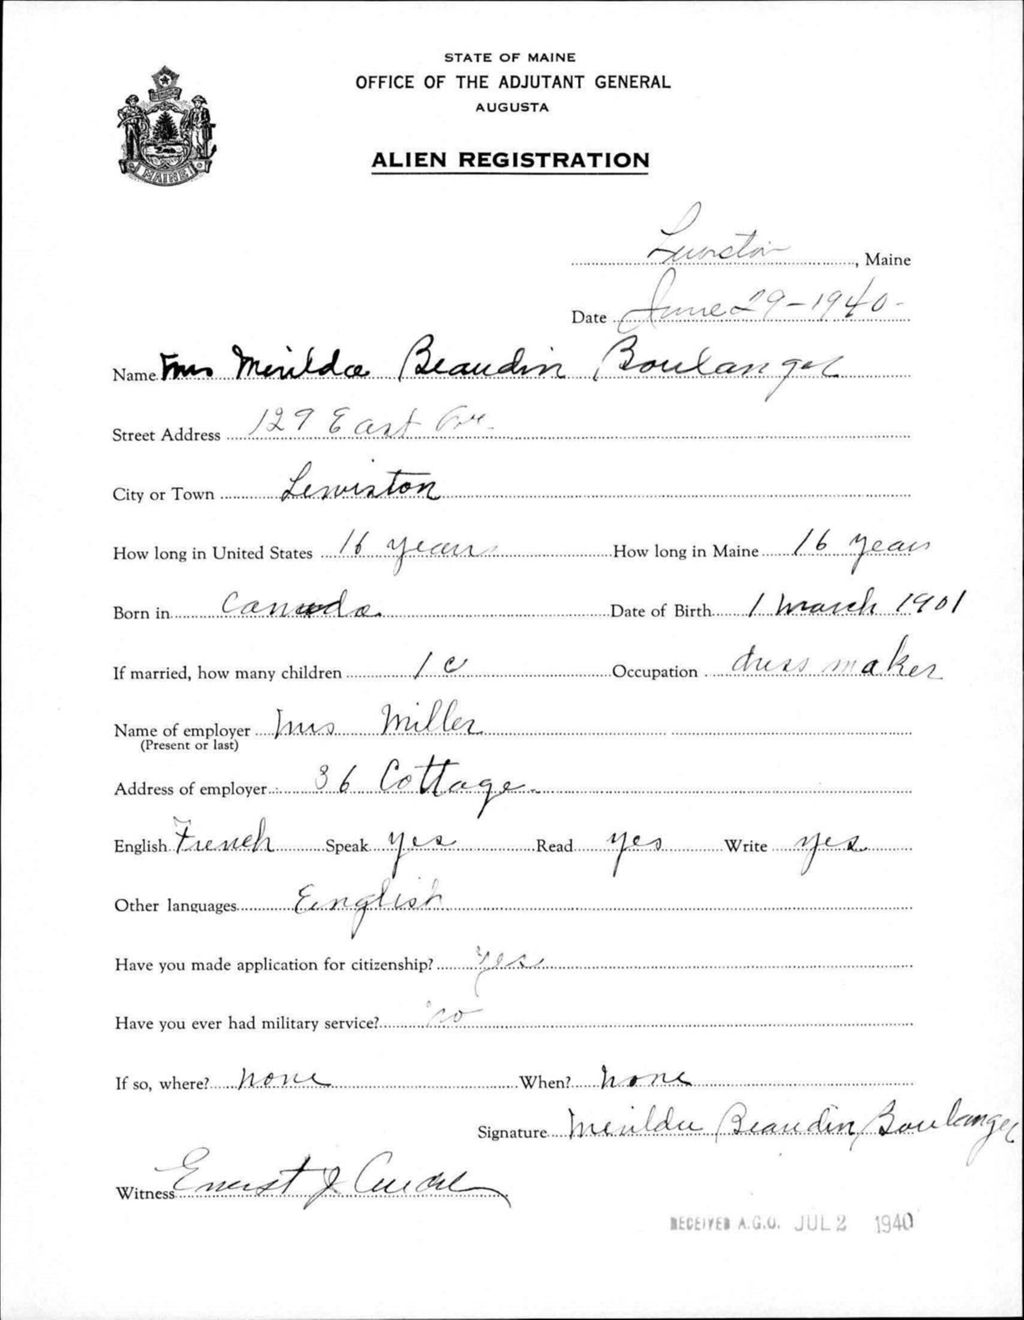 STATE OF MAINE
OFFICE OF THE ADJUTANT GENERAL
AUGUSTA
ALIEN REGISTRATION
MAINE
Lewiston, Maine
Date June 29-1940-
Name Mrs Merilda Beaudin Boulanger
Street Address 129 East Ave.
City or Town Lewiston
How long in United States 16 years How long in Maine 16 years
Born in Canada Date of Birth 1 March 1901
If married, how many children 1 c Occupation dress maker
Name of employer Mrs Miller
(Present or last)
Address of employer 36 Cottage.
English French Speak yes Read yes Write yes
Other languages English
Have you made application for citizenship? Yes
Have you ever had military service? no
If so, where? none When? none
Signature Merilda Beaudin Boulanger
Witness Ernest J.
RECEIVED A.G.O. JUL 2 1940